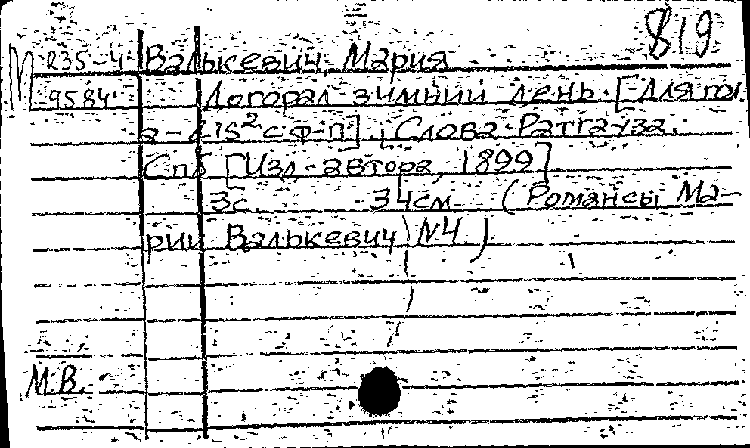 819
М R35-4 Валькевич, Мария
9584 Догорал зимний день. [Для гол.
a-dis² с ф-п]. Слова Ратгауза.
Спб [Изд. автора, 1899]
3с. 34см (Романсы Ма-
рии Валькевич N4.)
М.В.